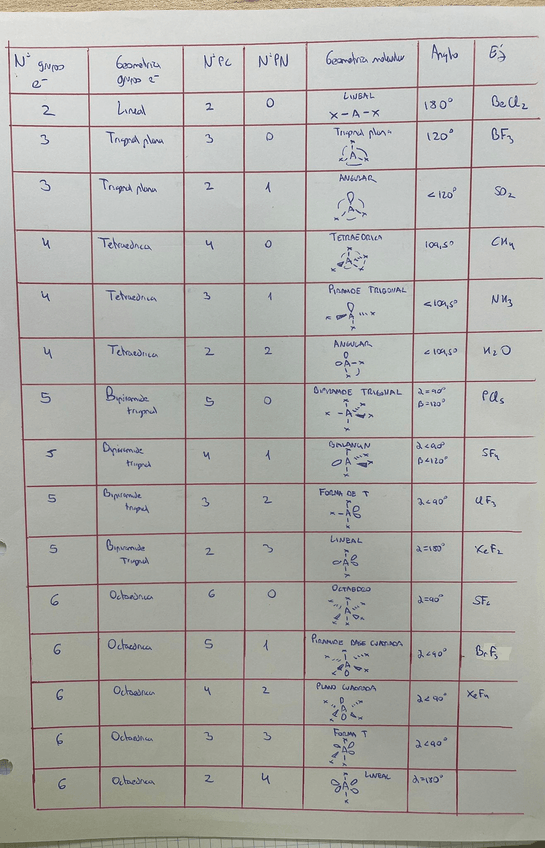 Nº grupos e⁻ | Geometría grupos e⁻ | NºPC | NºPN | Geometría molecular | Ángulo | Ej
2 | Lineal | 2 | 0 | LINEAL X-A-X | 180º | BeCl₂
3 | Trigonal plana | 3 | 0 | Trigonal plana | 120º | BF₃
3 | Trigonal plana | 2 | 1 | ANGULAR | <120º | SO₂
4 | Tetraédrica | 4 | 0 | TETRAEDRICA | 109,5º | CH₄
4 | Tetraédrica | 3 | 1 | PIRAMIDE TRIGONAL | <109,5º | NH₃
4 | Tetraédrica | 2 | 2 | ANGULAR | <109,5º | H₂O
5 | Bipiramide trigonal | 5 | 0 | BIPIRAMIDE TRIGONAL | α=90º β=120º | PCl₅
5 | Bipiramide trigonal | 4 | 1 | BALANCIN | α<90º β<120º | SF₄
5 | Bipiramide trigonal | 3 | 2 | FORMA DE T | α<90º | ClF₃
5 | Bipiramide Trigonal | 2 | 3 | LINEAL | α=180º | XeF₂
6 | Octaédrica | 6 | 0 | OCTAEDRO | α=90º | SF₆
6 | Octaédrica | 5 | 1 | PIRAMIDE BASE CUADRADA | α<90º
6 | Octaédrica | 4 | 2 | PLANO CUADRADA | α<90º | XeF₄
6 | Octaédrica | 3 | 3 | FORMA T | α<90º
6 | Octaédrica | 2 | 4 | LINEAL | α=180º